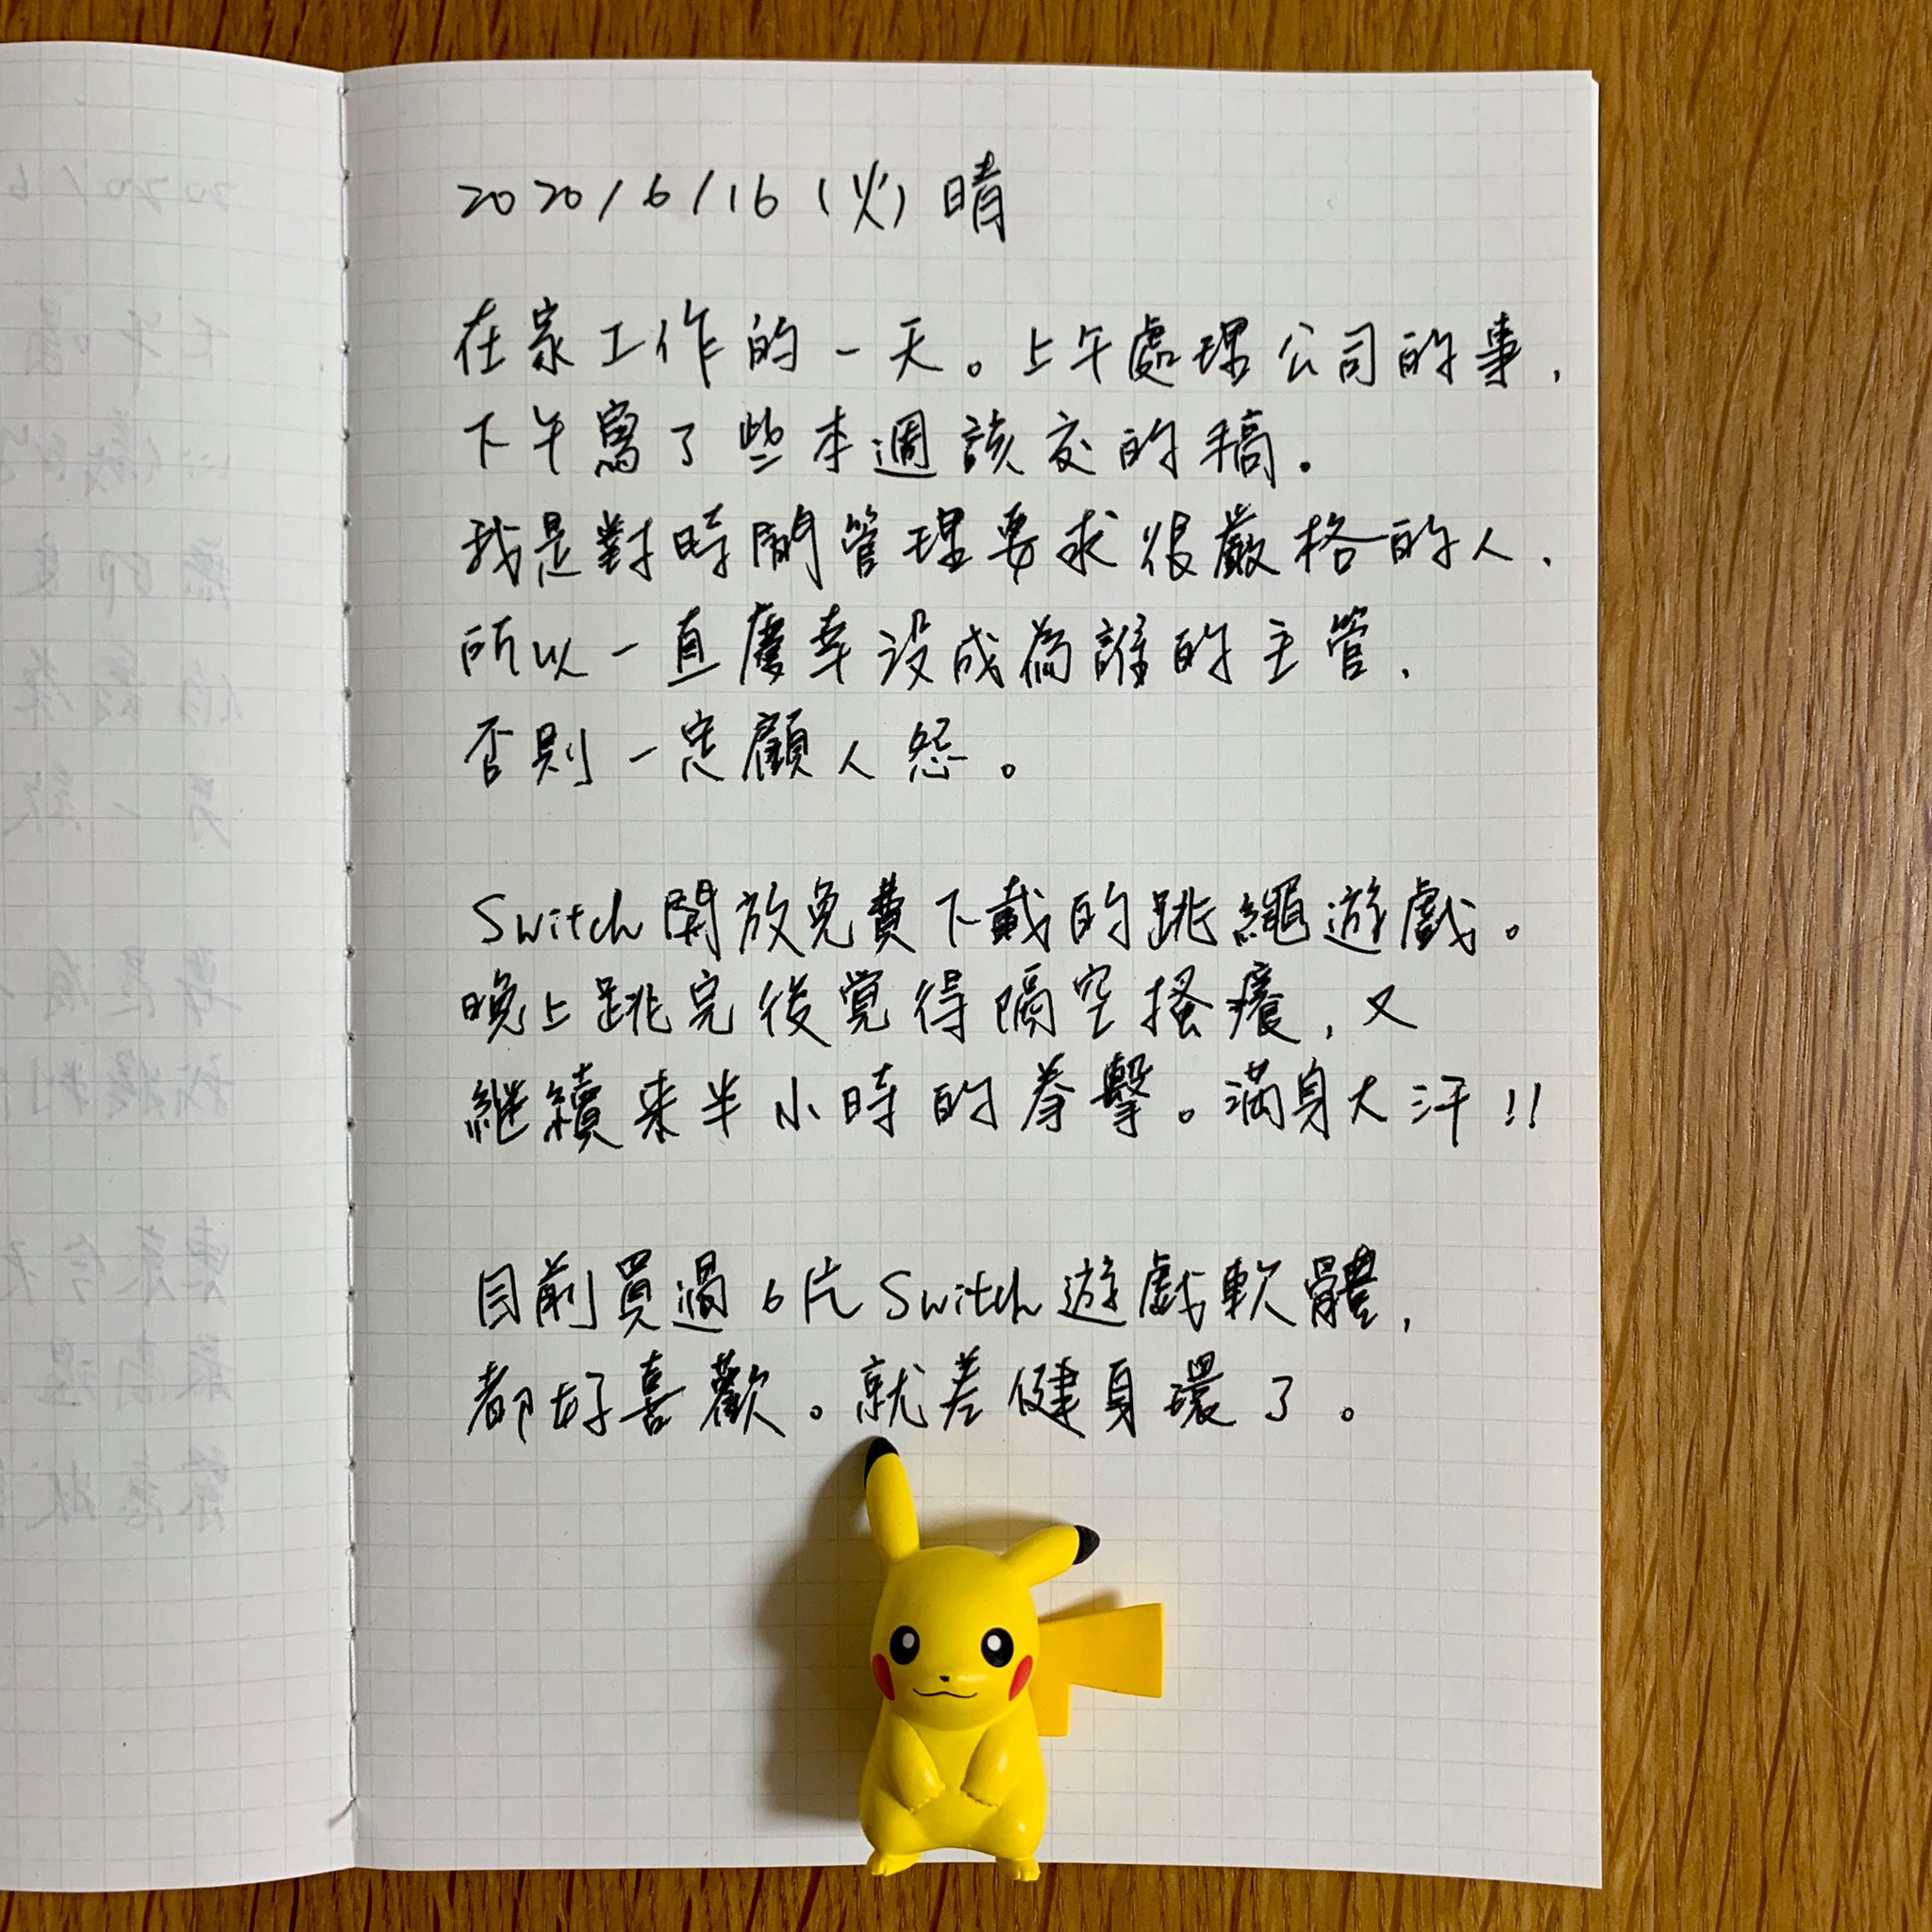 2020/6/16(火)晴
在家工作的一天。上午處理公司的事,
下午寫了些本週該交的稿。
我是對時間管理要求很嚴格的人,
所以一直慶幸沒成為誰的主管,
否則一定顧人怨。
Switch開放免費下載的跳繩遊戲。
晚上跳完後覺得隔空搔癢,又
繼續来半小時的拳擊。滿身大汗!!
目前買過6片Switch遊戲軟體,
都好喜歡。就差健身環了。